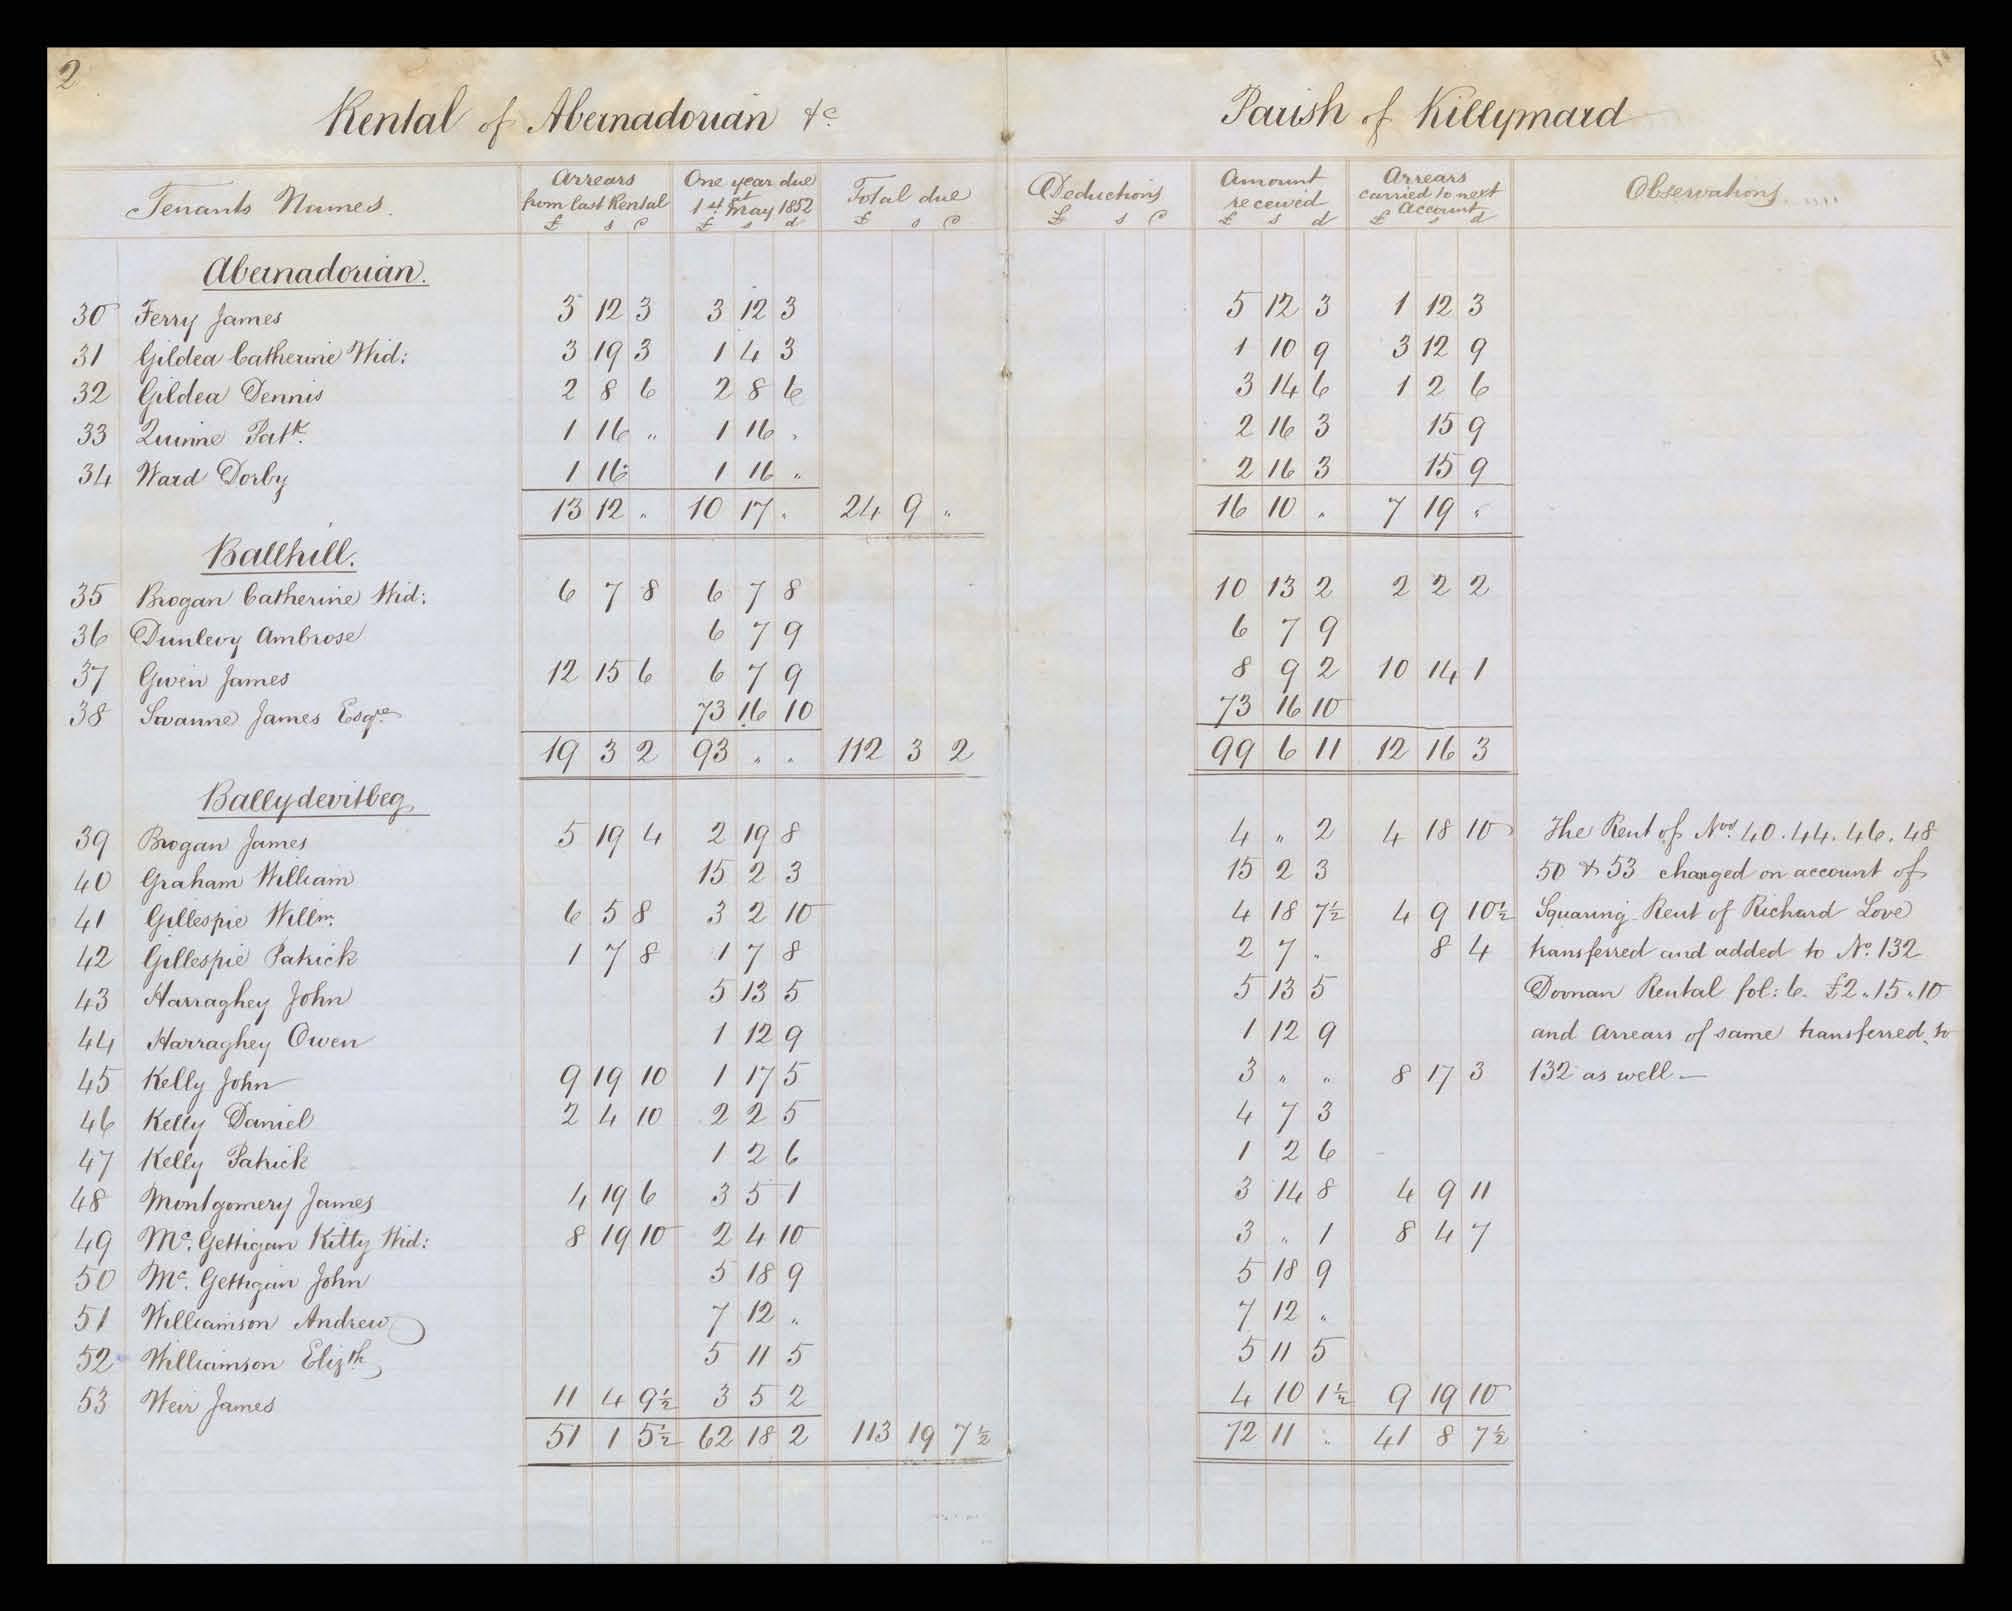 2
Rental of Abernadorian &c. Parish of Killymard
Tenants Names. Arrears from last Rental £ s d One year due at 1st May 1852 £ s d Total due £ s d Deductions £ s d Amount received £ s d Arrears carried to next Account £ s d Observations
Abernadorian.
30 Ferry James 3 12 3 3 12 3 5 12 3 1 12 3
31 Gildea Catherine Wid: 3 19 3 1 4 3 1 10 9 3 12 9
32 Gildea Dennis 2 8 6 2 8 6 3 14 6 1 2 6
33 Quinne Patk. 1 16 " 1 16 " 2 16 3 15 9
34 Ward Dorby 1 16 1 16 " 2 16 3 15 9
13 12 " 10 17 " 24 9 " 16 10 " 7 19 "
Ballhill.
35 Brogan Catherine Wid: 6 7 8 6 7 8 10 13 2 2 2 2
36 Dunlevy Ambrose 6 7 9 6 7 9
37 Given James 12 15 6 6 7 9 8 9 2 10 14 1
38 James Esqre 73 16 10 73 16 10
19 3 2 93 " " 112 3 2 99 6 11 12 16 3
Ballydevitbeg
39 Brogan James 5 19 4 2 19 8 4 " 2 4 18 10 The Rent of Nos. 40. 44. 46. 48
40 Graham William 15 2 3 15 2 3 50 & 53 charged on account of
41 Gillespie Willm. 6 5 8 3 2 10 4 18 7½ 4 9 10½ Squaring Rent of Richard Love
42 Gillespie Patrick 1 7 8 1 7 8 2 7 " 8 4 transferred and added to No. 132
43 Harraghey John 5 13 5 5 13 5 Doonan Rental fol: 6. £2. 15. 10
44 Harraghey Owen 1 12 9 1 12 9 and arrears of same transferred to
45 Kelly John 9 19 10 1 17 5 3 " " 8 17 3 132 as well —
46 Kelly Daniel 2 4 10 2 2 5 4 7 3
47 Kelly Patrick 1 2 6 1 2 6
48 Montgomery James 4 19 6 3 5 1 3 14 8 4 9 11
49 Mc. Gettigan Kitty Wid: 8 19 10 2 4 10 3 " 1 8 4 7
50 Mc. Gettigan John 5 18 9 5 18 9
51 Williamson Andrew 7 12 " 7 12 "
52 Williamson Elizth 5 11 5 5 11 5
53 Weir James 11 4 9½ 3 5 2 4 10 1½ 9 19 10
51 1 5½ 62 18 2 113 19 7½ 72 11 " 41 8 7½